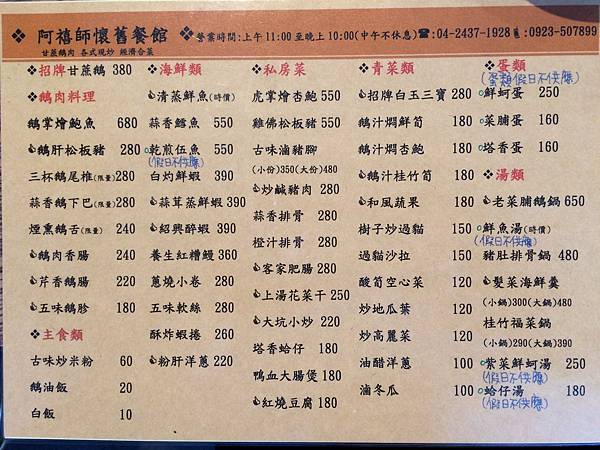 阿禧師懷舊餐館
甘蔗鵝肉 各式現炒 經濟合菜
營業時間:上午11:00至晚上10:00(中午不休息)☎:04-2437-1928 0923-507899
招牌甘蔗鵝 380
鵝肉料理
鵝掌燴鮑魚 680
鵝肝松板豬 280
三杯鵝尾椎(限量)280
蒜香鵝下巴(限量)280
煙熏鵝舌(限量) 240
鵝肉香腸 240
芹香鵝腸 220
五味鵝胗 180
主食類
古味炒米粉 60
鵝油飯 20
白飯 10
海鮮類
清蒸鮮魚(時價)
蒜香鱈魚 550
乾煎伍魚 550
(假日不供應)
白灼鮮蝦 390
蒜茸蒸鮮蝦 390
紹興醉蝦 390
養生紅糟鰻 360
蔥燒小卷 280
五味軟絲 280
酥炸蝦捲 260
粉肝洋蔥 220
私房菜
虎掌燴杏鮑 550
雞佛松板豬 550
古味滷豬腳
(小份)350(大份)480
炒鹹豬肉 280
蒜香排骨 280
橙汁排骨 280
客家肥腸 280
上湯花菜干 250
大坑小炒 220
塔香蛤仔 180
鴨血大腸煲 180
紅燒豆腐 180
青菜類
招牌白玉三寶 280
鵝汁燜鮮筍 180
鵝汁燜杏鮑 180
鵝汁桂竹筍 180
和風蔬果 180
樹子炒過貓 150
過貓沙拉 150
酸筍空心菜 120
炒地瓜葉 120
炒高麗菜 120
油醋洋蔥 100
滷冬瓜 100
蛋類
(蛋類假日不供應)
鮮蚵蛋 250
菜脯蛋 160
塔香蛋 160
湯類
老菜脯鵝鍋 650
鮮魚湯(時價)
(假日不供應)
豬肚排骨鍋 480
髮菜海鮮羹
(小鍋)300(大鍋)480
桂竹福菜鍋
(小鍋)290(大鍋)390
紫菜鮮蚵湯 250
(假日不供應)
蛤仔湯 180
(假日不供應)